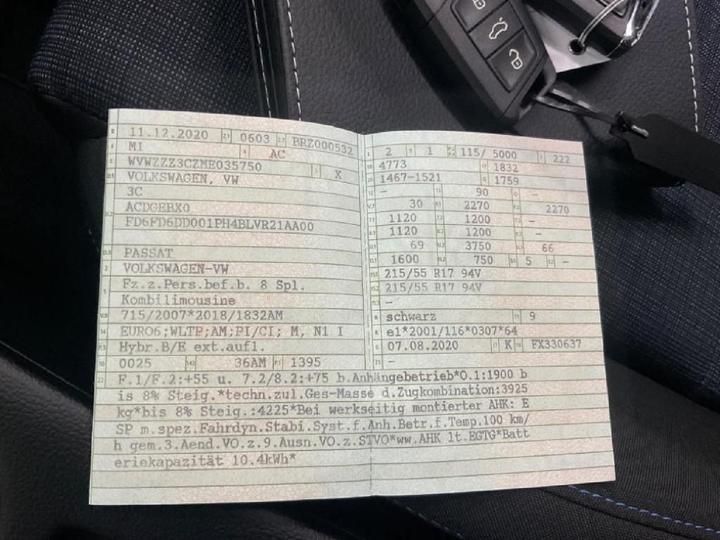 11.12.2020 0603 BRZ000532
M1 AC
WVWZZZ3CZME035750 X
VOLKSWAGEN, VW
3C
ACDGEBX0
FD6FD6DD001PH4BLVR21AA00
PASSAT
VOLKSWAGEN-VW
Fz.z.Pers.bef.b. 8 Spl.
Kombilimousine
715/2007*2018/1832AM
EURO6;WLTP;AM;PI/CI; M, N1 I
Hybr.B/E ext.aufl.
0025 36AM 1395
2 1 115/ 5000 222
4773 1832
1467-1521 1759
- 90 -
30 2270 2270
1120 1200 -
1120 1200 -
69 3750 66
1600 750 5 -
215/55 R17 94V
215/55 R17 94V
-
schwarz 9
e1*2001/116*0307*64
07.08.2020 K FX330637
-
F.1/F.2:+55 u. 7.2/8.2:+75 b.Anhängebetrieb*O.1:1900 b
is 8% Steig.*techn.zul.Ges-Masse d.Zugkombination:3925
kg*bis 8% Steig.:4225*Bei werkseitig montierter AHK: E
SP m.spez.Fahrdyn.Stabi.Syst.f.Anh.Betr.f.Temp.100 km/
h gem.3.Aend.VO.z.9.Ausn.VO.z.STVO*ww.AHK lt.EGTG*Batt
eriekapazität 10.4kWh*